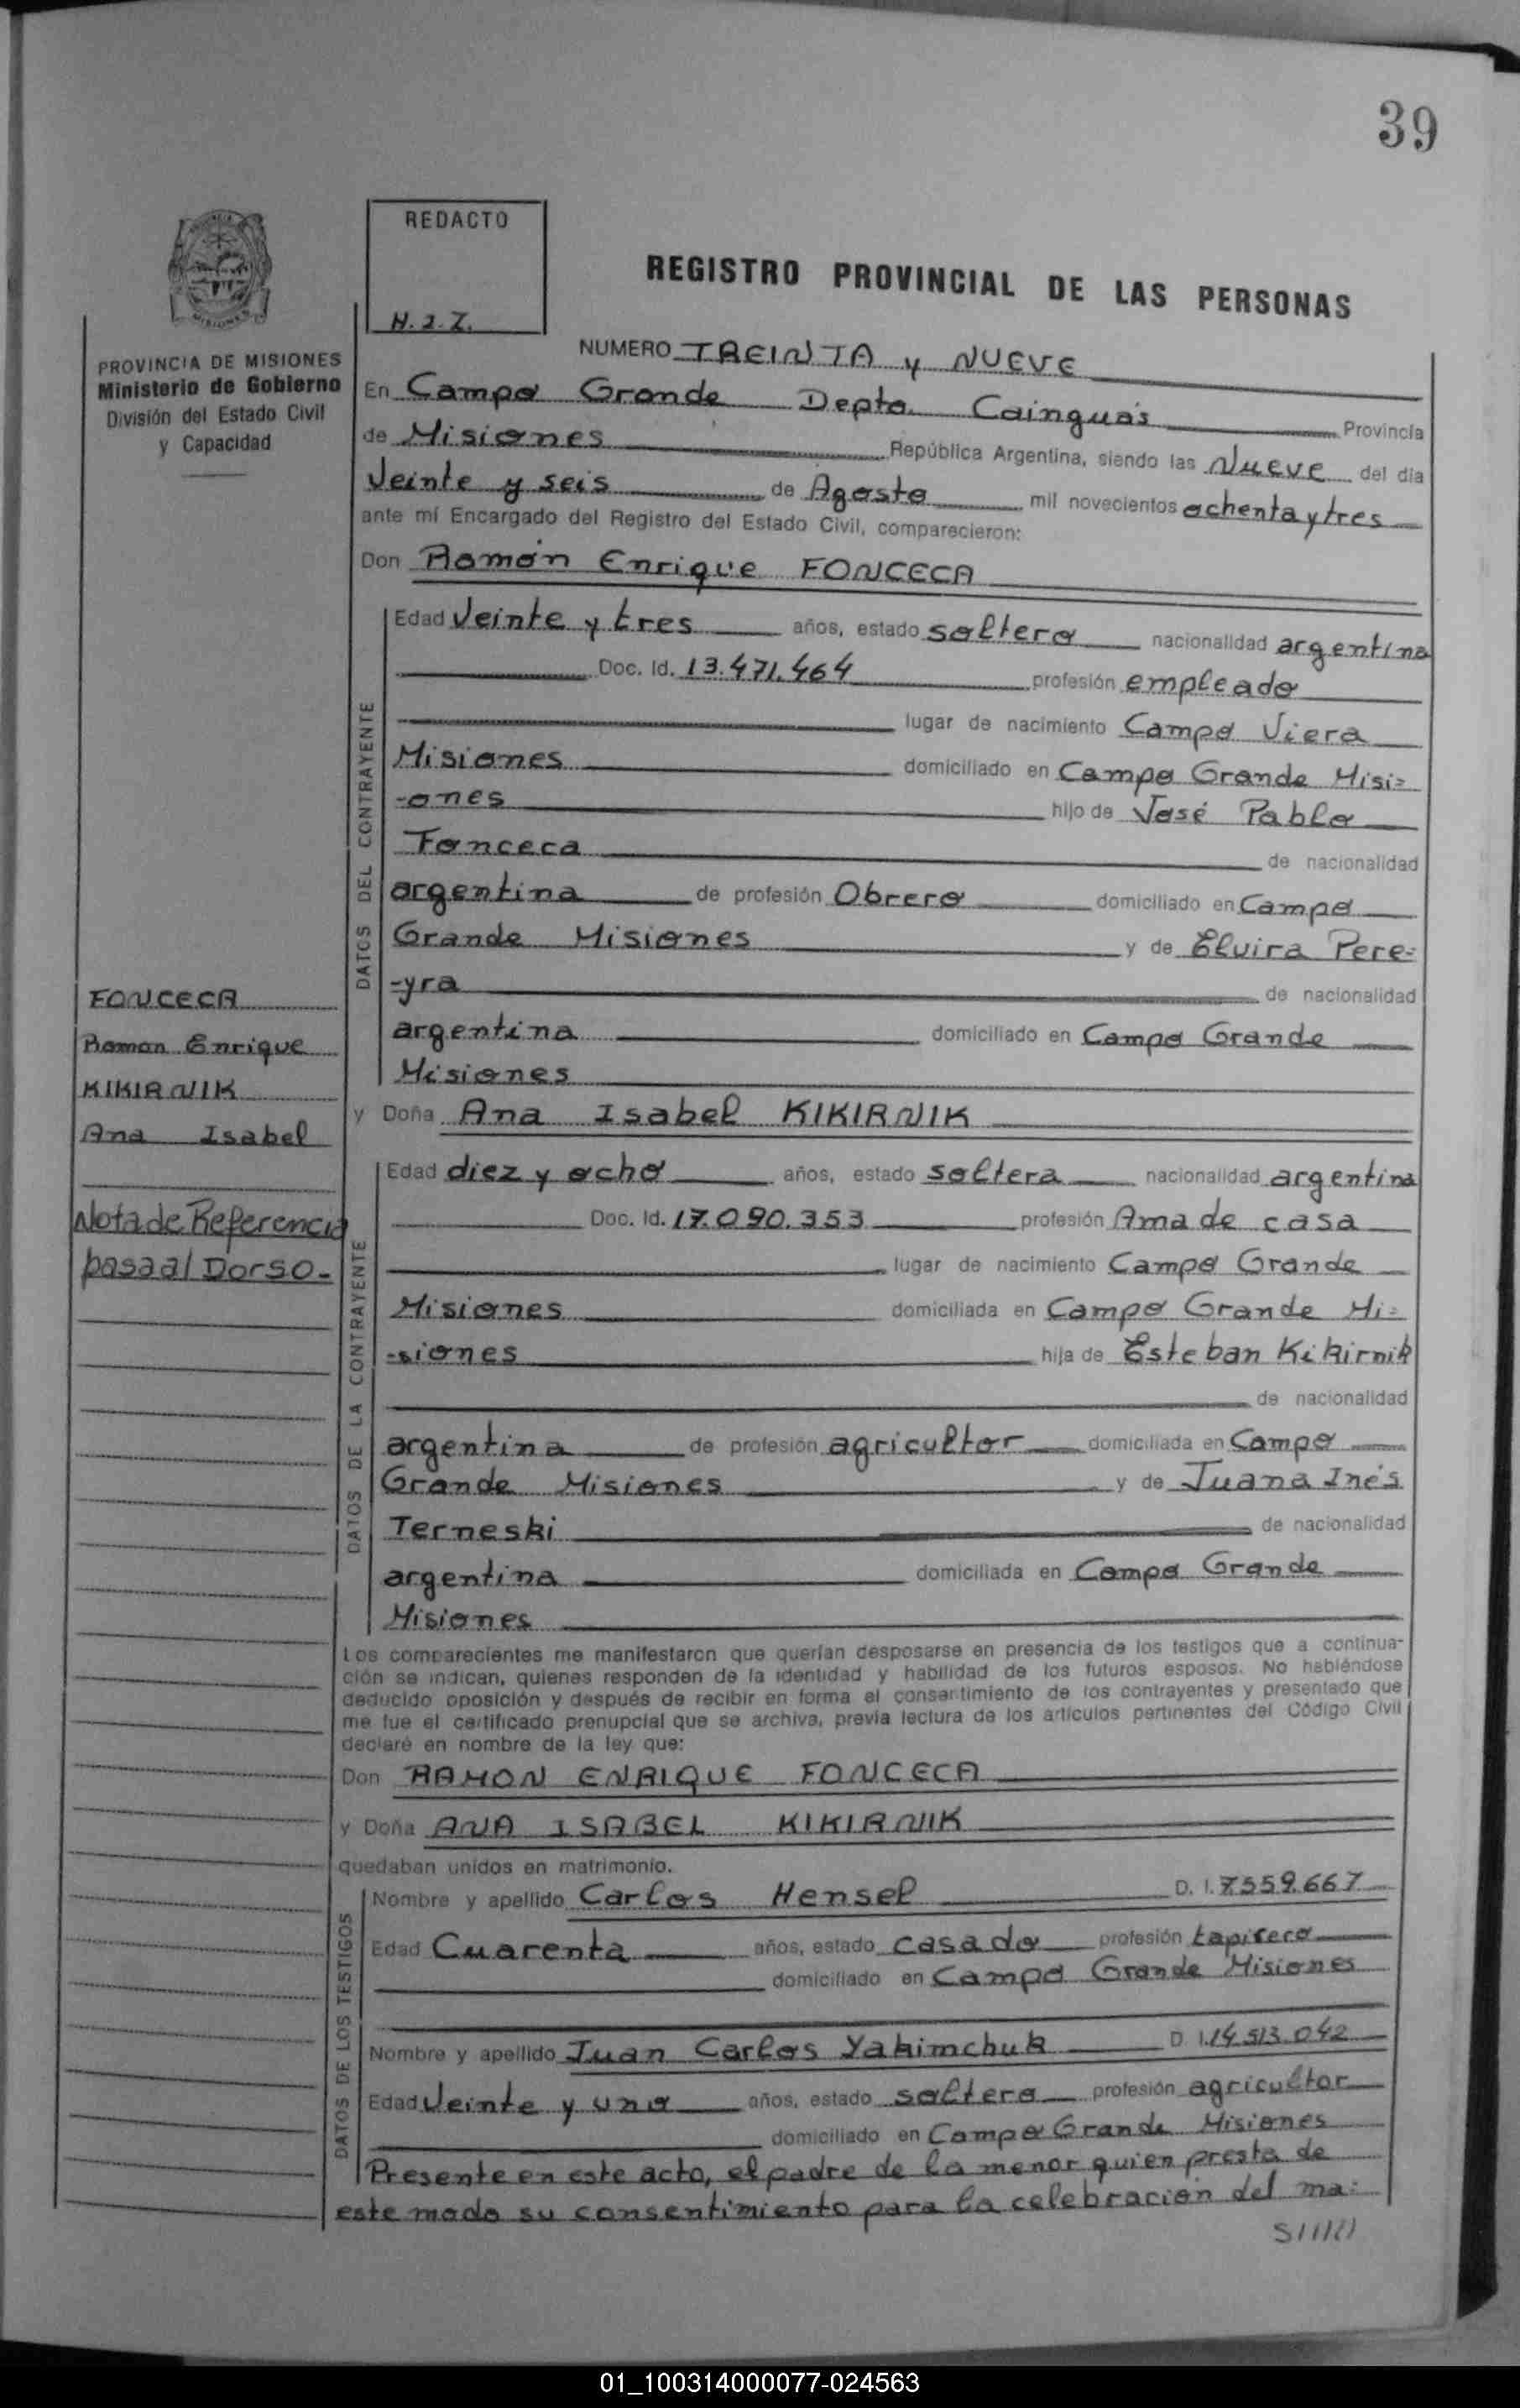 39
REDACTO
H.J.Z.
REGISTRO PROVINCIAL DE LAS PERSONAS
PROVINCIA DE MISIONES
Ministerio de Gobierno
División del Estado Civil
y Capacidad
NUMERO TREINTA y NUEVE
En Campo Grande Depto Cainguás Provincia
de Misiones República Argentina, siendo las Nueve del día
Veinte y seis de Agosto mil novecientos ochenta y tres
ante mí Encargado del Registro del Estado Civil, comparecieron:
Don Ramón Enrique FONCECA
DATOS DEL CONTRAYENTE
Edad Veinte y tres años, estado soltero nacionalidad argentina
Doc. Id. 13.471.464 profesión empleado
lugar de nacimiento Campo Viera
Misiones domiciliado en Campo Grande Misi=
-ones hijo de José Pablo
Fonceca de nacionalidad
argentina de profesión Obrero domiciliado en Campo
Grande Misiones y de Elvira Pere=
-yra de nacionalidad
argentina domiciliado en Campo Grande
Misiones
FONCECA
Ramon Enrique
KIKIRNIK
Ana Isabel
Nota de Referencia
pasa al Dorso-
y Doña Ana Isabel KIKIRNIK
DATOS DE LA CONTRAYENTE
Edad diez y ocho años, estado soltera nacionalidad argentina
Doc. Id. 17.090.353 profesión Ama de casa
lugar de nacimiento Campo Grande
Misiones domiciliada en Campo Grande Mi=
-siones hija de Esteban Kikirnik
de nacionalidad
argentina de profesión agricultor domiciliada en Campo
Grande Misiones y de Juana Inés
Terneski de nacionalidad
argentina domiciliada en Campo Grande
Misiones
Los comparecientes me manifestaron que querían desposarse en presencia de los testigos que a continua-
ción se indican, quienes responden de la identidad y habilidad de los futuros esposos. No habiéndose
deducido oposición y después de recibir en forma el consentimiento de los contrayentes y presentado que
me fue el certificado prenupcial que se archiva, previa lectura de los artículos pertinentes del Código Civil
declaré en nombre de la ley que:
Don RAMON ENRIQUE FONCECA
y Doña ANA ISABEL KIKIRNIK
quedaban unidos en matrimonio.
DATOS DE LOS TESTIGOS
Nombre y apellido Carlos Hensel D. I. 7.559.667
Edad Cuarenta años, estado casado profesión tapicero
domiciliado en Campo Grande Misiones
Nombre y apellido Juan Carlos Yakimchuk D. I. 14.513.042
Edad Veinte y uno años, estado soltero profesión agricultor
domiciliado en Campo Grande Misiones
Presente en este acto, el padre de la menor quien presta de
este modo su consentimiento para la celebración del ma=
01_100314000077-024563